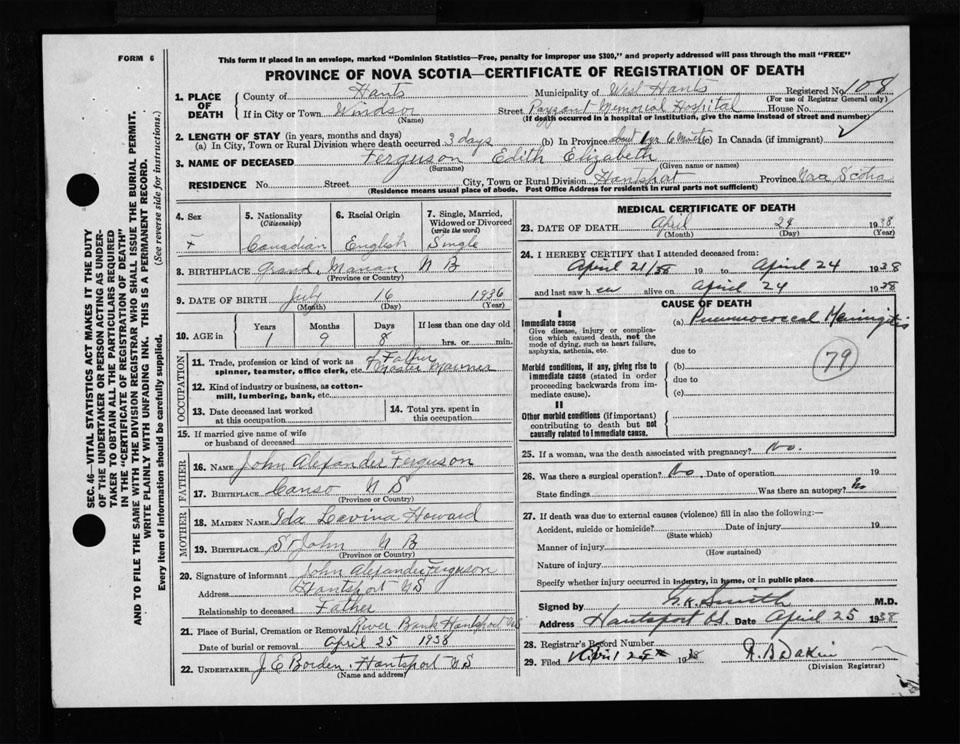 FORM 6
This form if placed in an envelope, marked "Dominion Statistics—Free, penalty for improper use $300," and properly addressed will pass through the mail "FREE"
PROVINCE OF NOVA SCOTIA—CERTIFICATE OF REGISTRATION OF DEATH
SEC. 46—VITAL STATISTICS ACT MAKES IT THE DUTY
OF THE UNDERTAKER OR PERSON ACTING AS UNDER-
TAKER TO OBTAIN ALL THE PARTICULARS REQUIRED
IN THE "CERTIFICATE OF REGISTRATION OF DEATH"
AND TO FILE THE SAME WITH THE DIVISION REGISTRAR WHO SHALL ISSUE THE BURIAL PERMIT.
WRITE PLAINLY WITH UNFADING INK. THIS IS A PERMANENT RECORD.
Every item of information should be carefully supplied. (See reverse side for instructions.)
1. PLACE OF DEATH
County of Hants Municipality of West Hants Registered No. 108
(For use of Registrar General only)
If in City or Town Windsor Street Payzant Memorial Hospital House No.
(Name) (If death occurred in a hospital or institution, give the name instead of street and number)
2. LENGTH OF STAY (in years, months and days)
(a) In City, Town or Rural Division where death occurred 3 days (b) In Province about 1 yr 6 months (c) In Canada (if immigrant)
3. NAME OF DECEASED Ferguson Edith Elizabeth
(Surname) (Given name or names)
RESIDENCE No. Street City, Town or Rural Division Hantsport Province Nova Scotia
(Residence means usual place of abode. Post Office Address for residents in rural parts not sufficient)
4. Sex
5. Nationality (Citizenship) Canadian
6. Racial Origin English
7. Single, Married, Widowed or Divorced (write the word) Single
8. BIRTHPLACE Grand Manan N B
(Province or Country)
9. DATE OF BIRTH July 16 1936
(Month) (Day) (Year)
10. AGE in Years Months Days If less than one day old
1 9 8 hrs. or min.
OCCUPATION
11. Trade, profession or kind of work as spinner, teamster, office clerk, etc. of Father Master Mariner
12. Kind of industry or business, as cotton-mill, lumbering, bank, etc.
13. Date deceased last worked at this occupation
14. Total yrs. spent in this occupation
15. If married give name of wife or husband of deceased
FATHER
16. NAME John Alexander Ferguson
17. BIRTHPLACE Canso N S
(Province or Country)
MOTHER
18. MAIDEN NAME Ida Lavina Howard
19. BIRTHPLACE St John N B
(Province or Country)
20. Signature of informant John Alexander Ferguson
Address Hantsport N S
Relationship to deceased Father
21. Place of Burial, Cremation or Removal River Bank Hantsport N S
Date of burial or removal April 25 1938
22. UNDERTAKER J E Borden, Hantsport N S
(Name and address)
MEDICAL CERTIFICATE OF DEATH
23. DATE OF DEATH April 24 1938
(Month) (Day) (Year)
24. I HEREBY CERTIFY that I attended deceased from:
April 21/38 19 to April 24 1938
and last saw h er alive on April 24 1938
CAUSE OF DEATH
I
Immediate cause (a) Pneumococcal Meningitis
Give disease, injury or complication which caused death, not the mode of dying, such as heart failure, asphyxia, asthenia, etc.
due to
Morbid conditions, if any, giving rise to immediate cause (stated in order proceeding backwards from immediate cause).
(b)
due to
(c)
79
II
Other morbid conditions (if important) contributing to death but not causally related to immediate cause.
25. If a woman, was the death associated with pregnancy? No.
26. Was there a surgical operation? No. Date of operation 19
State findings Was there an autopsy? No
27. If death was due to external causes (violence) fill in also the following:—
Accident, suicide or homicide? Date of injury 19
(State which)
Manner of injury
(How sustained)
Nature of injury
Specify whether injury occurred in industry, in home, or in public place
Signed by G. K. Smith M.D.
Address Hantsport N.S. Date April 25 1938
28. Registrar's Record Number
29. Filed April 1938
(Division Registrar)